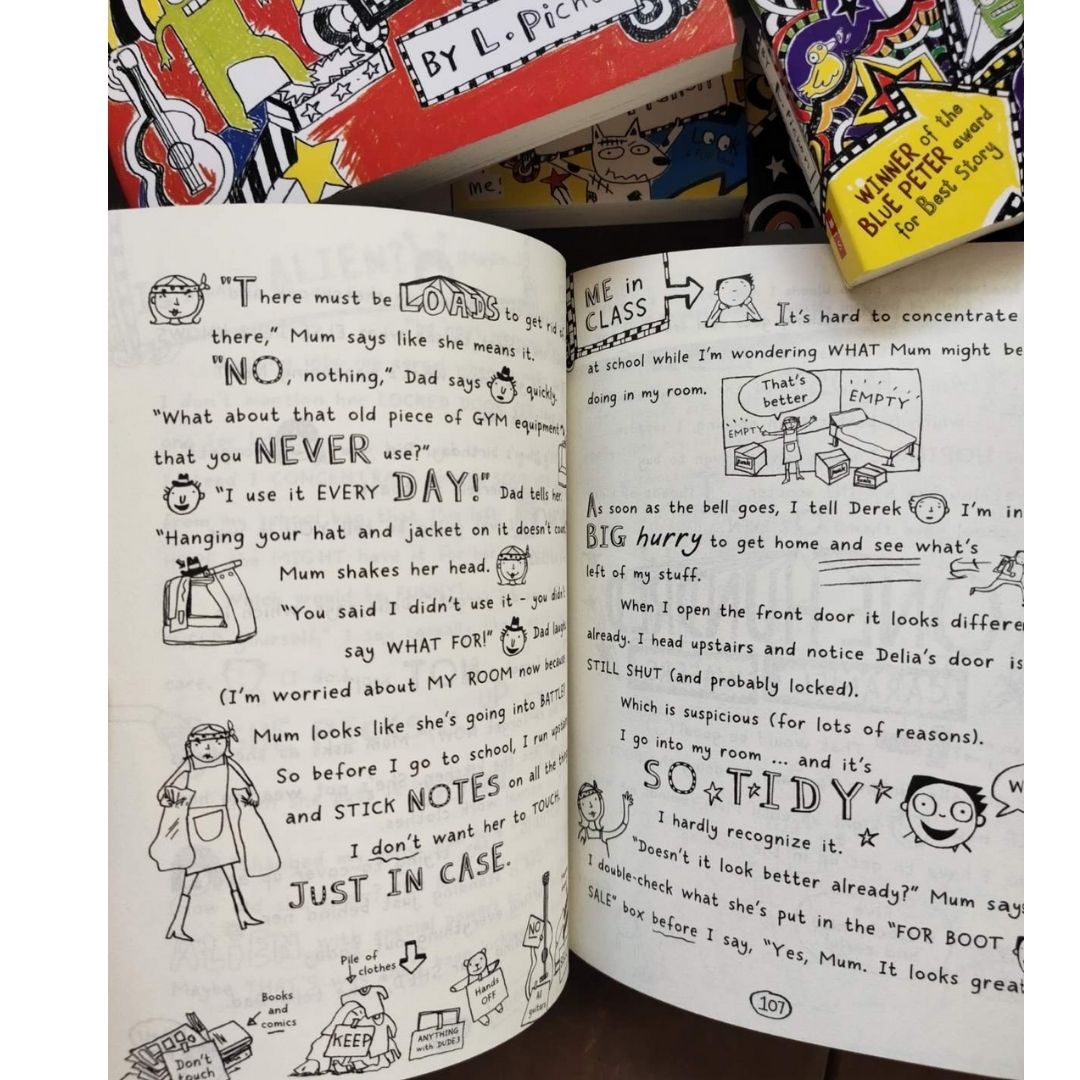 BY L. Picho
me!
WINNER of the
BLUE PETER award
for Best Story
"There must be LOADS to get rid of
there," Mum says like she means it.
"NO, nothing," Dad says quickly.
"What about that old piece of GYM equipment
that you NEVER use?"
"I use it EVERY DAY!" Dad tells her.
"Hanging your hat and jacket on it doesn't count.
Mum shakes her head.
"You said I didn't use it - you didn't
say WHAT FOR!" Dad laughs
(I'm worried about MY ROOM now because
Mum looks like she's going into BATTLE!
So before I go to school, I run upstairs
and STICK NOTES on all the things
I don't want her to TOUCH.
JUST IN CASE.
Pile of
clothes
Books
and
comics
Don't
touch
KEEP
ANYTHING
with DUDE3
Hands
OFF
NO
All
guitars
ME in
CLASS
It's hard to concentrate
at school while I'm wondering WHAT Mum might be
doing in my room.
That's
better
EMPTY
EMPTY
Junk
Junk
Junk
As soon as the bell goes, I tell Derek I'm in
BIG hurry to get home and see what's
left of my stuff.
When I open the front door it looks differe
already. I head upstairs and notice Delia's door is
STILL SHUT (and probably locked).
Which is suspicious (for lots of reasons).
I go into my room ... and it's
SO TIDY
W
I hardly recognize it.
"Doesn't it look better already?" Mum says
I double-check what she's put in the "FOR BOOT
SALE" box before I say, "Yes, Mum. It looks great
107